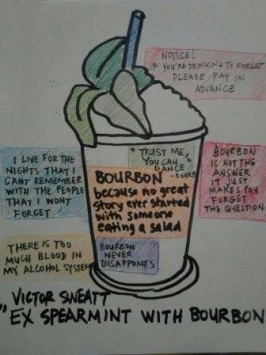 NOTICE!
IF YOU'RE DRINKING TO FORGET
PLEASE PAY IN
ADVANCE
"TRUST ME,
YOU CAN
DANCE"
I LIVE FOR THE
NIGHTS THAT I
CANT REMEMBER
WITH THE PEOPLE
THAT I WONT
FORGET
BOURBON
because no great
story ever started
with someone
eating a salad
BOURBON
IS NOT THE
ANSWER
IT JUST
MAKES YOU
FORGET
THE QUESTION
THERE IS TOO
MUCH BLOOD IN
MY ALCOHOL SYSTEM
BOURBON
NEVER
DISAPPOINTS
VICTOR SWEATT
"EX SPEARMINT WITH BOURBON